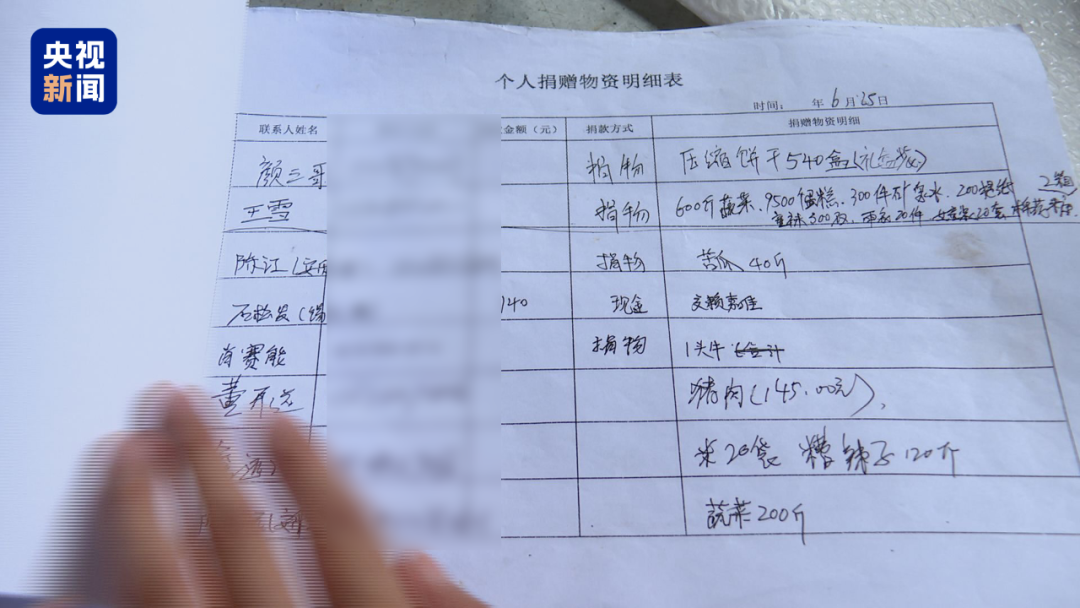 央视
新闻
个人捐赠物资明细表
时间: 年6月25日
联系人姓名 金额（元） 捐款方式 捐赠物资明细
颜三哥 捐物 压缩饼干540盒(礼盒装)
王雪 捐物 600斤蔬菜、9500蛋糕、300件矿泉水、200
2箱
雨衣20件
捐物 苦瓜40斤
140 现金
肖赛能 捐物 1头牛
董 猪肉(145.00元)、
米20袋 糟辣子120斤
蔬菜200斤